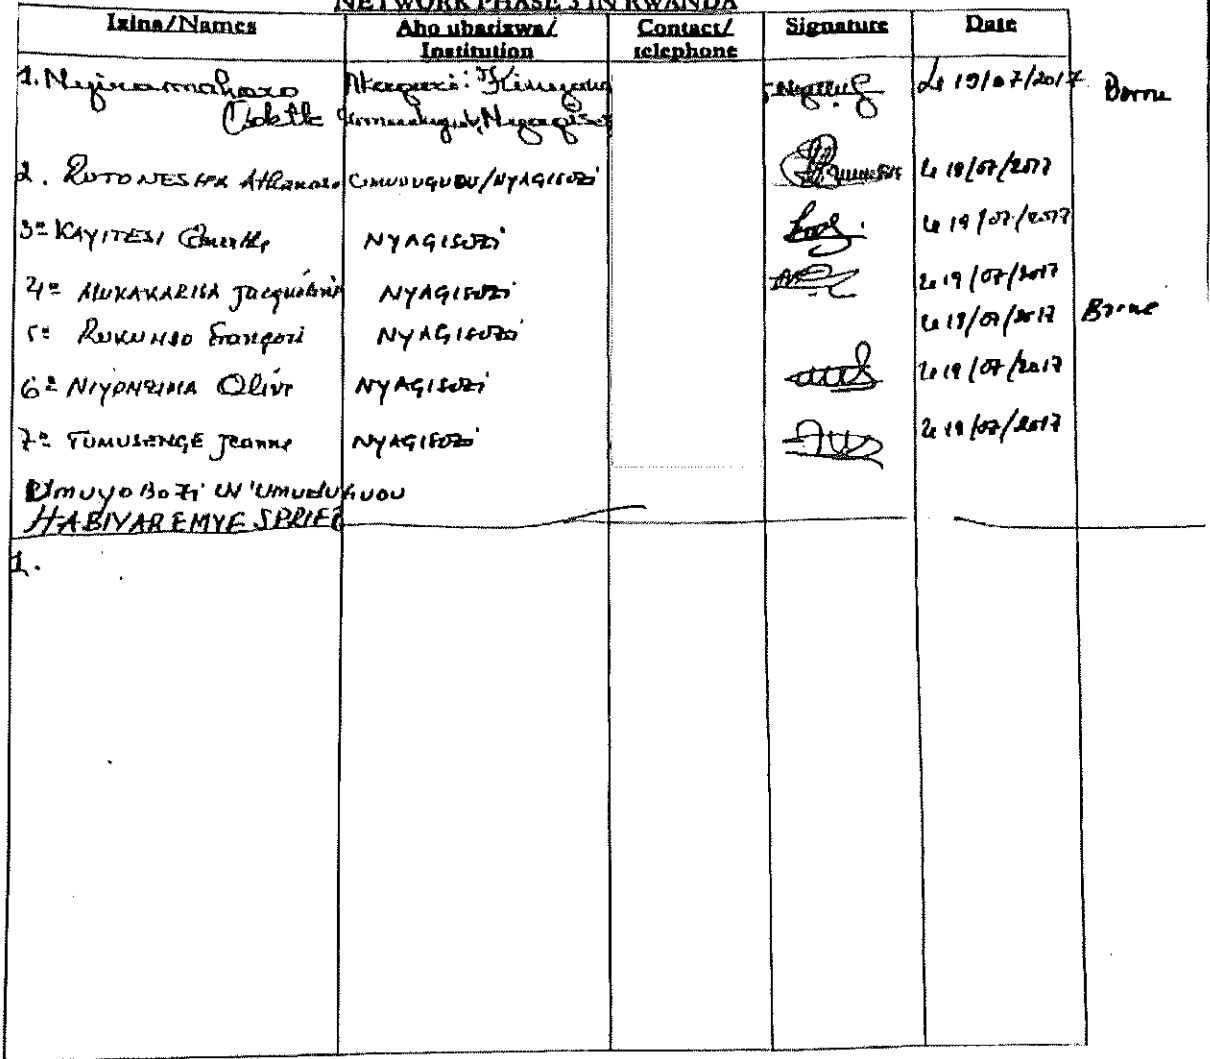 NETWORK PHASE 3 IN RWANDA
Izina/Names Aho ubarizwa/ Institution Contact/ telephone Signature Date
1. Nyiramaharo Le 19/07/2017 Borne
Odette
2. RUTONESHA Athanase UMUDUGUDU/NYAGISOZI Le 19/07/2017
3= KAYITESI NYAGISOZI Le 19/07/2017
4= MUKAKARISA Jacqueline NYAGISOZI Le 19/07/2017
5= RUKUNDO François NYAGISOZI Le 19/07/2017 Borne
6= NIYONZIMA Olive NYAGISOZI Le 19/07/2017
7= TUMUSENGE Jeanne NYAGISOZI Le 19/07/2017
Umuyobozi W'Umudugudu
HABIYAREMYE
1.